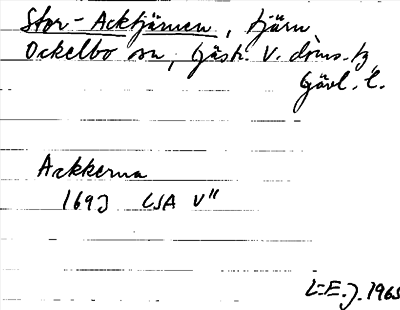 Stor-Acktjärnen, tjärn
Ockelbo sn, Gästr. V. doms. tg
Gävl. l.
Aakkerna
1693 LSA V"
L-E. J. 1965